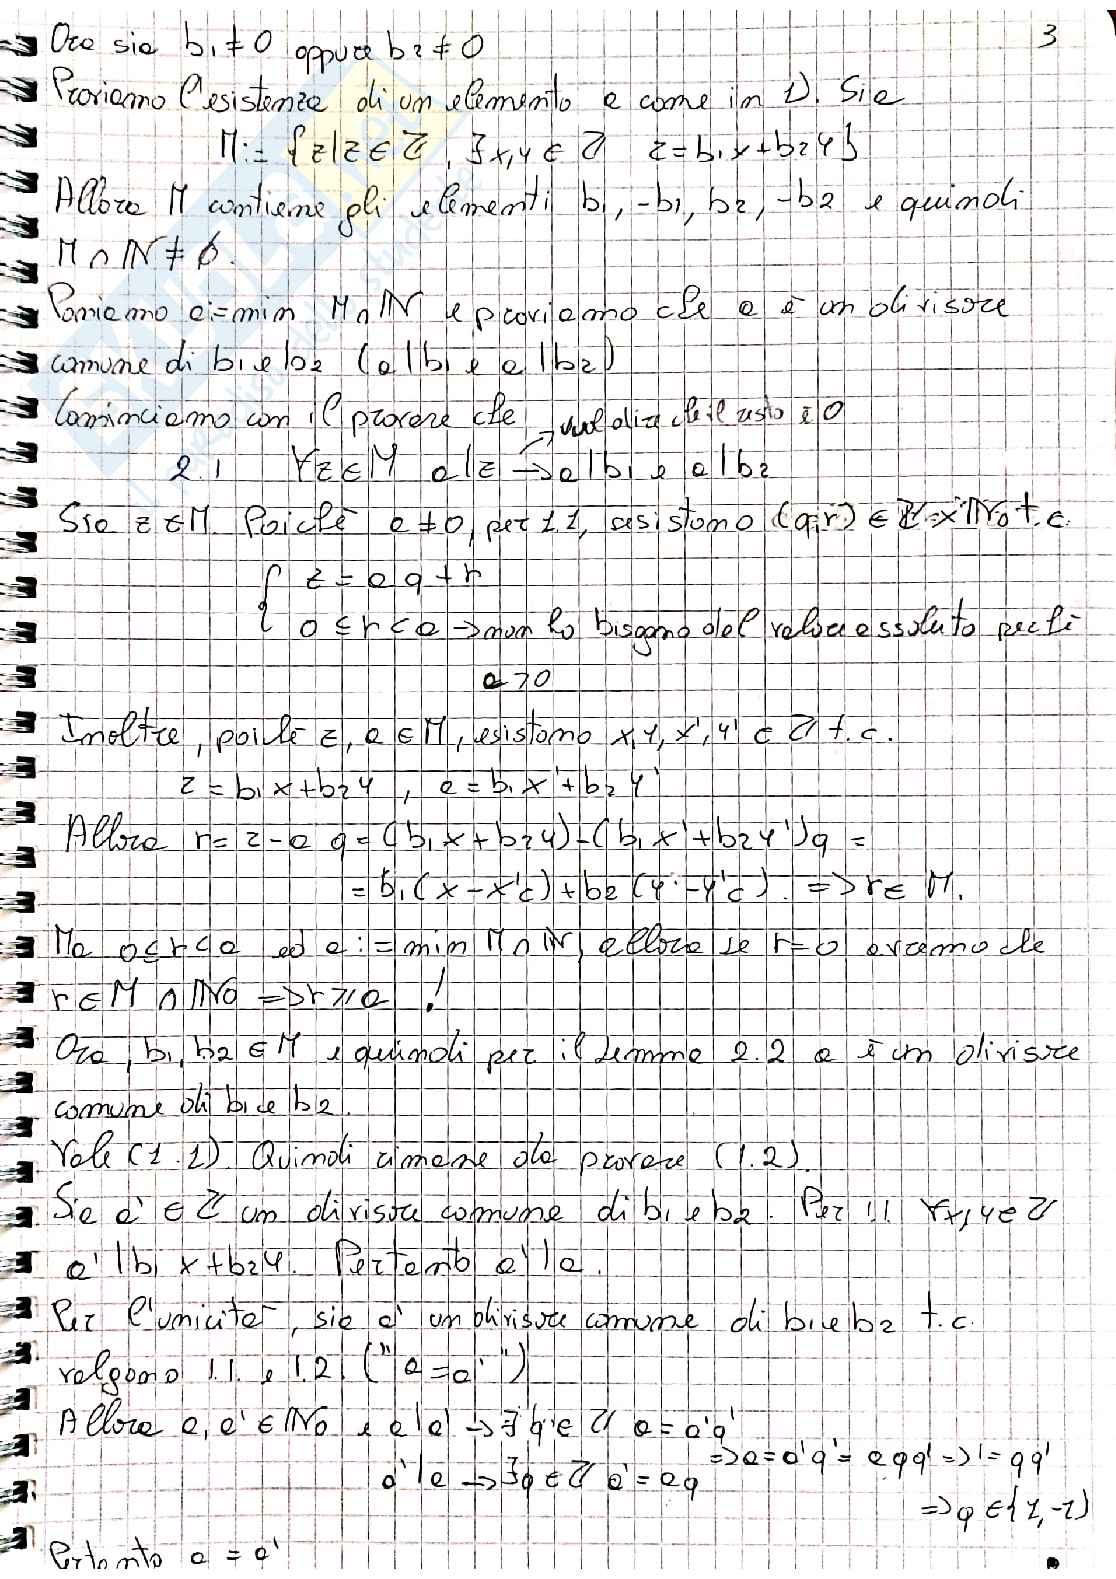 3
Ora sia b₁ ≠ 0 oppure b₂ ≠ 0
Proviamo l'esistenza di un elemento a come in 1). Sia
M := {z | z ∈ ℤ, ∃x,y ∈ ℤ z = b₁x + b₂y}
Allora M contiene gli elementi b₁, -b₁, b₂, -b₂ e quindi
M ∩ ℕ ≠ ∅.
Poniamo a := min M ∩ ℕ e proviamo che a è un divisore
comune di b₁ e b₂ (a | b₁ e a | b₂)
Cominciamo con il provare che → vuol dire che il resto è 0
2.1 ∀z ∈ M a | z → a | b₁ e a | b₂
Sia z ∈ M. Poichè a ≠ 0, per 1.1, esistono (q,r) ∈ ℤ × ℕ₀ t.c.
{ z = a q + r
0 ≤ r < a → non ho bisogno del valore assoluto perchè
a > 0
Inoltre, poichè z, a ∈ M, esistono x, y, x', y' ∈ ℤ t.c.
z = b₁x + b₂y , a = b₁x' + b₂y'
Allora r = z - a q = (b₁x + b₂y) - (b₁x' + b₂y')q =
= b₁(x - x'c) + b₂(y - y'c). => r ∈ M.
Ma 0 ≤ r < a ed a := min M ∩ ℕ, allora se r = 0 avremo che
r ∈ M ∩ ℕ₀ => r ≥ a !
Ora, b₁, b₂ ∈ M e quindi per il lemma 2.2 a è un divisore
comune di b₁ e b₂.
Vale (1.1). Quindi rimane da provare (1.2).
Sia a' ∈ ℤ un divisore comune di b₁ e b₂. Per 1.1 ∀x,y ∈ ℤ
a' | b₁x + b₂y. Pertanto a' | a.
Per l'unicità, sia a' un divisore comune di b₁ e b₂ t.c.
valgono 1.1. e 1.2 ("a = a'")
Allora a, a' ∈ ℕ₀ e a | a' → ∃q' ∈ ℤ a = a'q'
a' | a → ∃q ∈ ℤ a' = aq => a = a'q' = aqq' => 1 = qq'
=> q ∈ {1, -1}
Pertanto a = a'